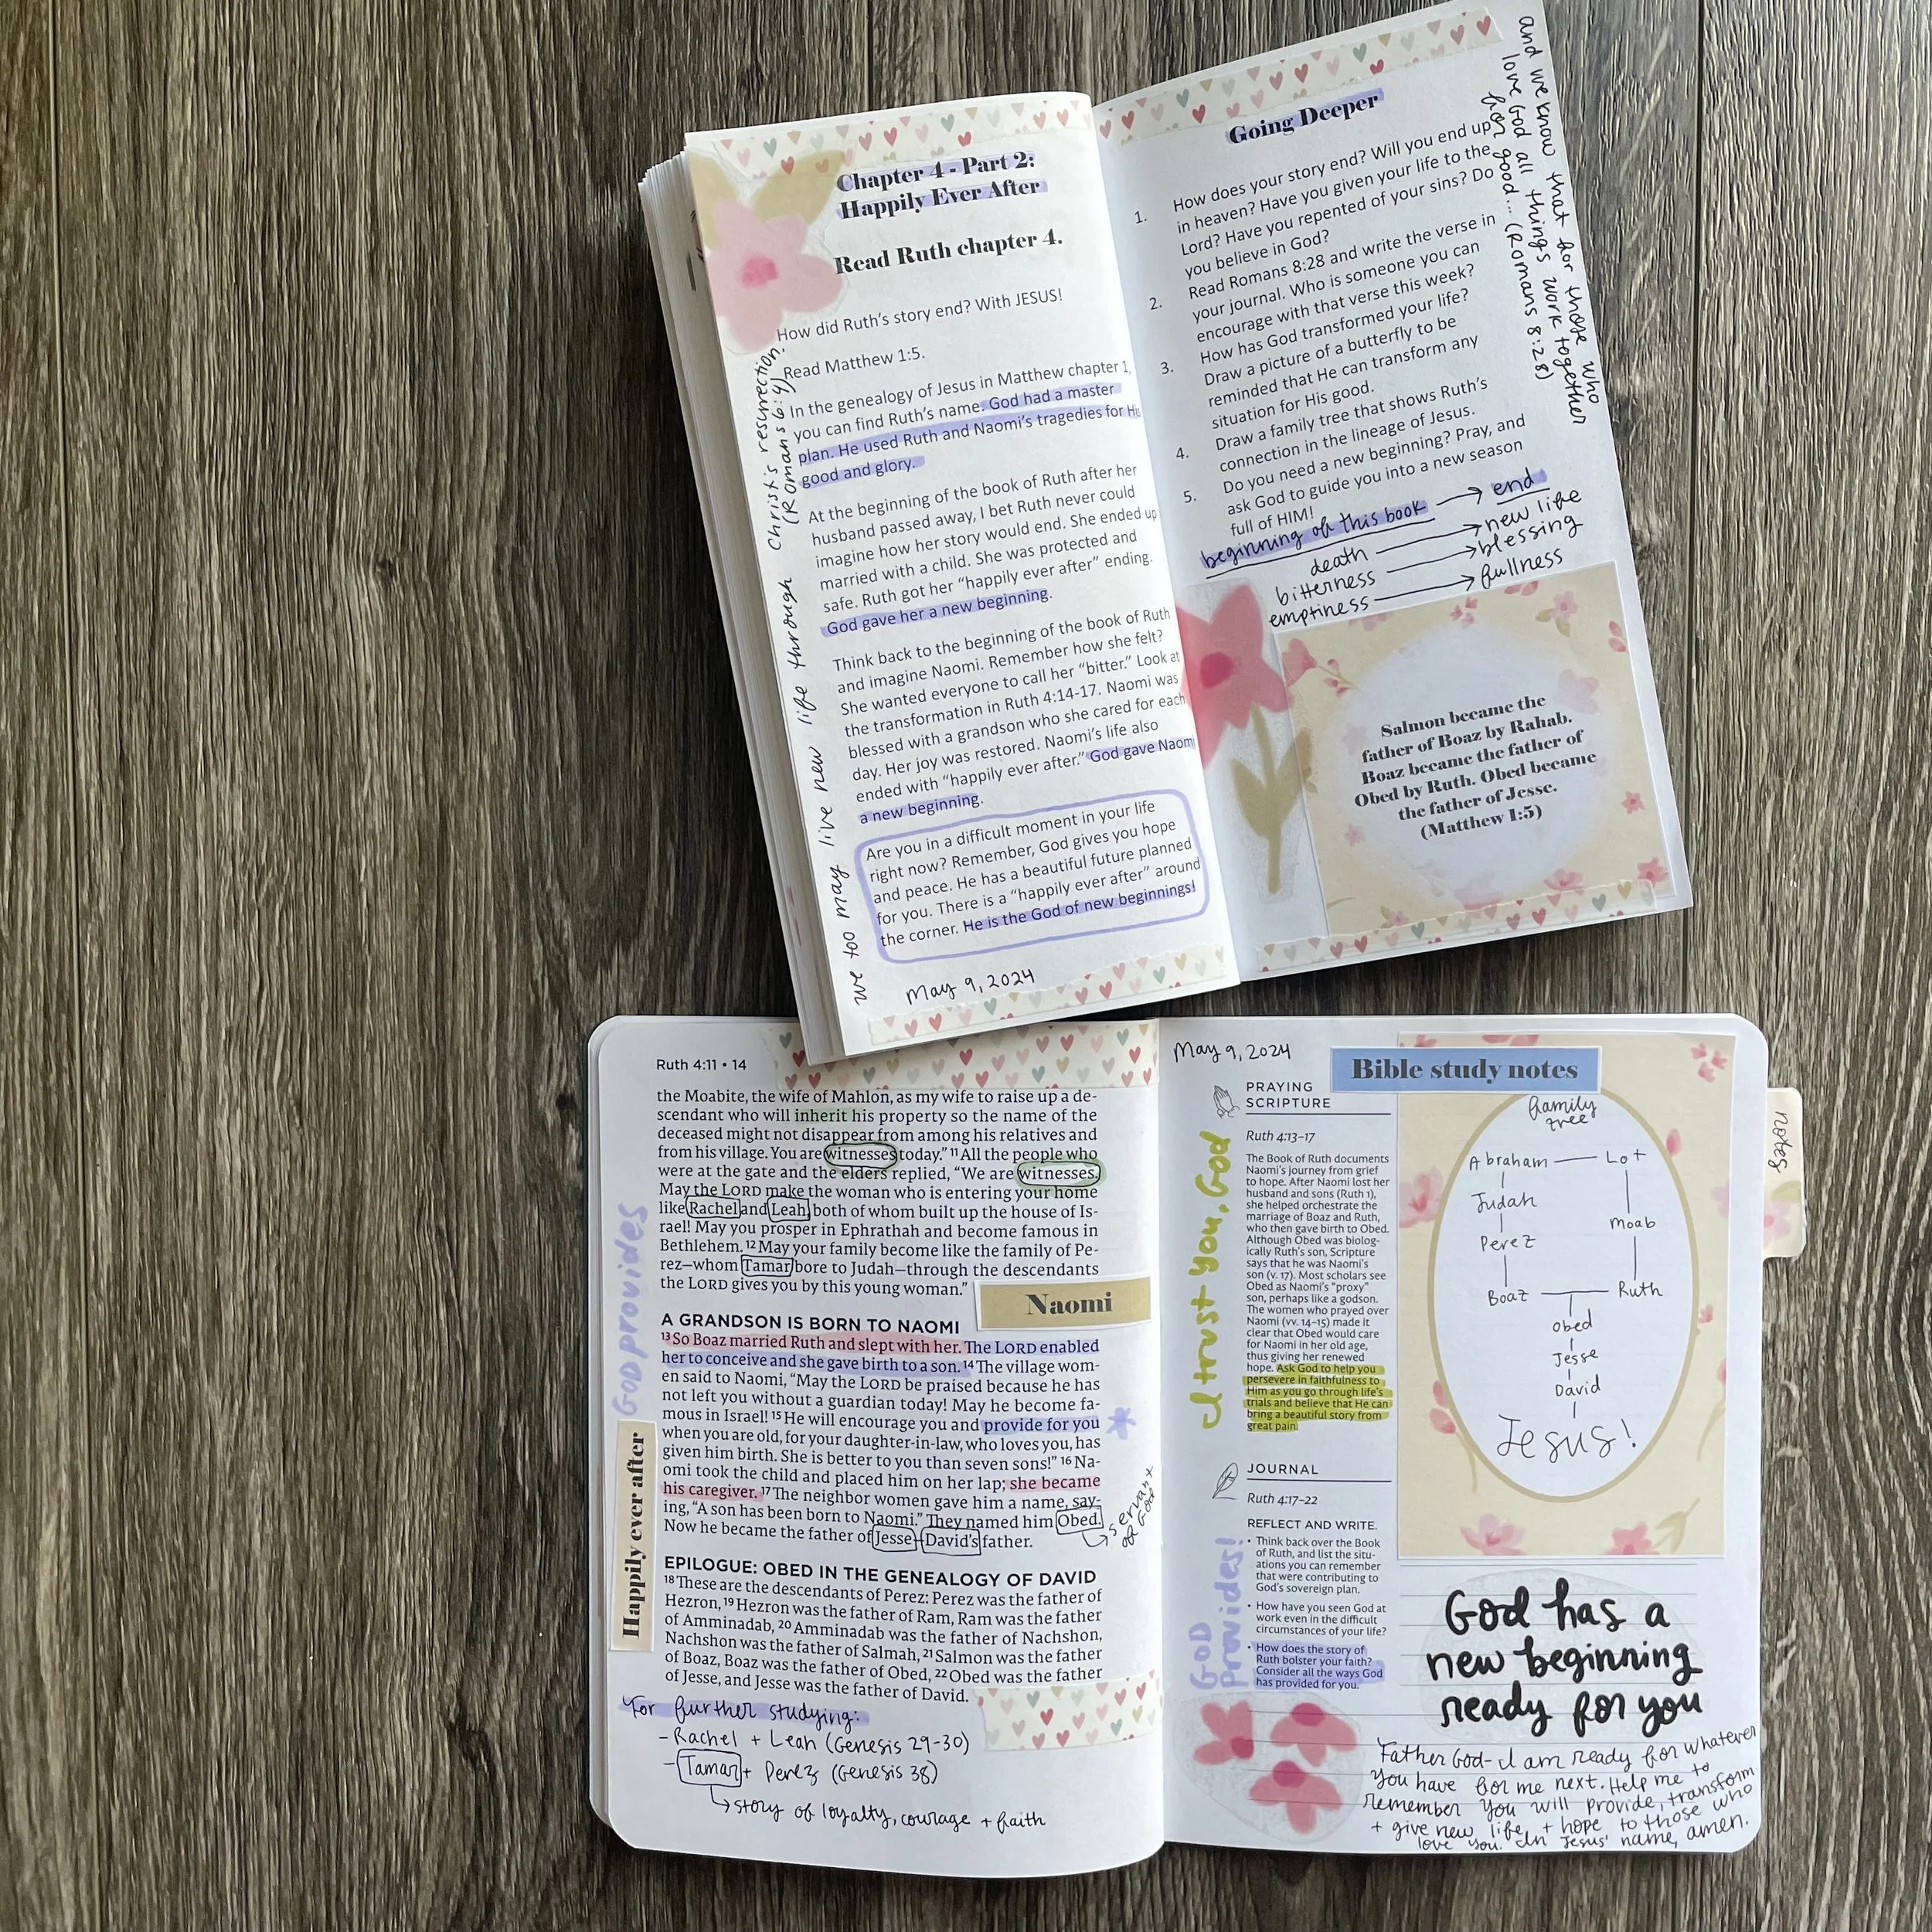 Chapter 4 - Part 2:
Happily Ever After
Read Ruth chapter 4.
How did Ruth's story end? With JESUS!
Read Matthew 1:5.
In the genealogy of Jesus in Matthew chapter 1,
you can find Ruth's name. God had a master
plan. He used Ruth and Naomi's tragedies for His
good and glory.
At the beginning of the book of Ruth after her
husband passed away, I bet Ruth never could
imagine how her story would end. She ended up
married with a child. She was protected and
safe. Ruth got her "happily ever after" ending.
God gave her a new beginning.
Think back to the beginning of the book of Ruth
and imagine Naomi. Remember how she felt?
She wanted everyone to call her "bitter." Look at
the transformation in Ruth 4:14-17. Naomi was
blessed with a grandson who she cared for each
day. Her joy was restored. Naomi's life also
ended with "happily ever after." God gave Naomi
a new beginning.
Are you in a difficult moment in your life
right now? Remember, God gives you hope
and peace. He has a beautiful future planned
for you. There is a "happily ever after" around
the corner. He is the God of new beginnings!
May 9, 2024
we too may live new life through Christ's resurrection.
(Romans 6:4)
Going Deeper
1. How does your story end? Will you end up
in heaven? Have you given your life to the
Lord? Have you repented of your sins? Do
you believe in God?
2. Read Romans 8:28 and write the verse in
your journal. Who is someone you can
encourage with that verse this week?
3. How has God transformed your life?
Draw a picture of a butterfly to be
reminded that He can transform any
situation for His good.
4. Draw a family tree that shows Ruth's
connection in the lineage of Jesus.
5. Do you need a new beginning? Pray, and
ask God to guide you into a new season
full of HIM!
and we know that for those who
love God all things work together
for good... (Romans 8:28)
beginning of this book → end
death → new life
bitterness → blessing
emptiness → fullness
Salmon became the
father of Boaz by Rahab.
Boaz became the father of
Obed by Ruth. Obed became
the father of Jesse.
(Matthew 1:5)
Ruth 4:11 • 14
the Moabite, the wife of Mahlon, as my wife to raise up a de-
scendant who will inherit his property so the name of the
deceased might not disappear from among his relatives and
from his village. You are witnesses today." 11 All the people who
were at the gate and the elders replied, "We are witnesses.
May the LORD make the woman who is entering your home
like Rachel and Leah, both of whom built up the house of Is-
rael! May you prosper in Ephrathah and become famous in
Bethlehem. 12 May your family become like the family of Pe-
rez—whom Tamar bore to Judah—through the descendants
the LORD gives you by this young woman."
Naomi
A GRANDSON IS BORN TO NAOMI
13 So Boaz married Ruth and slept with her. The LORD enabled
her to conceive and she gave birth to a son. 14 The village wom-
en said to Naomi, "May the LORD be praised because he has
not left you without a guardian today! May he become fa-
mous in Israel! 15 He will encourage you and provide for you
when you are old, for your daughter-in-law, who loves you, has
given him birth. She is better to you than seven sons!" 16 Na-
omi took the child and placed him on her lap; she became
his caregiver. 17 The neighbor women gave him a name, say-
ing, "A son has been born to Naomi." They named him Obed.
Now he became the father of Jesse—David's father.
servant
of God
EPILOGUE: OBED IN THE GENEALOGY OF DAVID
18 These are the descendants of Perez: Perez was the father of
Hezron, 19 Hezron was the father of Ram, Ram was the father
of Amminadab, 20 Amminadab was the father of Nachshon,
Nachshon was the father of Salmah, 21 Salmon was the father
of Boaz, Boaz was the father of Obed, 22 Obed was the father
of Jesse, and Jesse was the father of David.
GOD provides
Happily ever after
For further studying:
- Rachel + Leah (Genesis 29-30)
- Tamar + Perez (Genesis 38)
↳ story of loyalty, courage + faith
May 9, 2024
PRAYING
SCRIPTURE
Ruth 4:13–17
The Book of Ruth documents
Naomi's journey from grief
to hope. After Naomi lost her
husband and sons (Ruth 1),
she helped orchestrate the
marriage of Boaz and Ruth,
who then gave birth to Obed.
Although Obed was biolog-
ically Ruth's son, Scripture
says that he was Naomi's
son (v. 17). Most scholars see
Obed as Naomi's "proxy"
son, perhaps like a godson.
The women who prayed over
Naomi (vv. 14–15) made it
clear that Obed would care
for Naomi in her old age,
thus giving her renewed
hope. Ask God to help you
persevere in faithfulness to
Him as you go through life's
trials and believe that He can
bring a beautiful story from
great pain.
I trust you, God
JOURNAL
Ruth 4:17–22
REFLECT AND WRITE.
• Think back over the Book
of Ruth, and list the situ-
ations you can remember
that were contributing to
God's sovereign plan.
• How have you seen God at
work even in the difficult
circumstances of your life?
• How does the story of
Ruth bolster your faith?
Consider all the ways God
has provided for you.
GOD
provides!
Bible study notes
family
tree
Abraham — Lot
Judah
Moab
Perez
Boaz — Ruth
Obed
Jesse
David
Jesus!
notes
God has a
new beginning
ready for you
Father God- I am ready for whatever
You have for me next. Help me to
remember You will provide, transform
+ give new life + hope to those who
love You. In Jesus' name, amen.